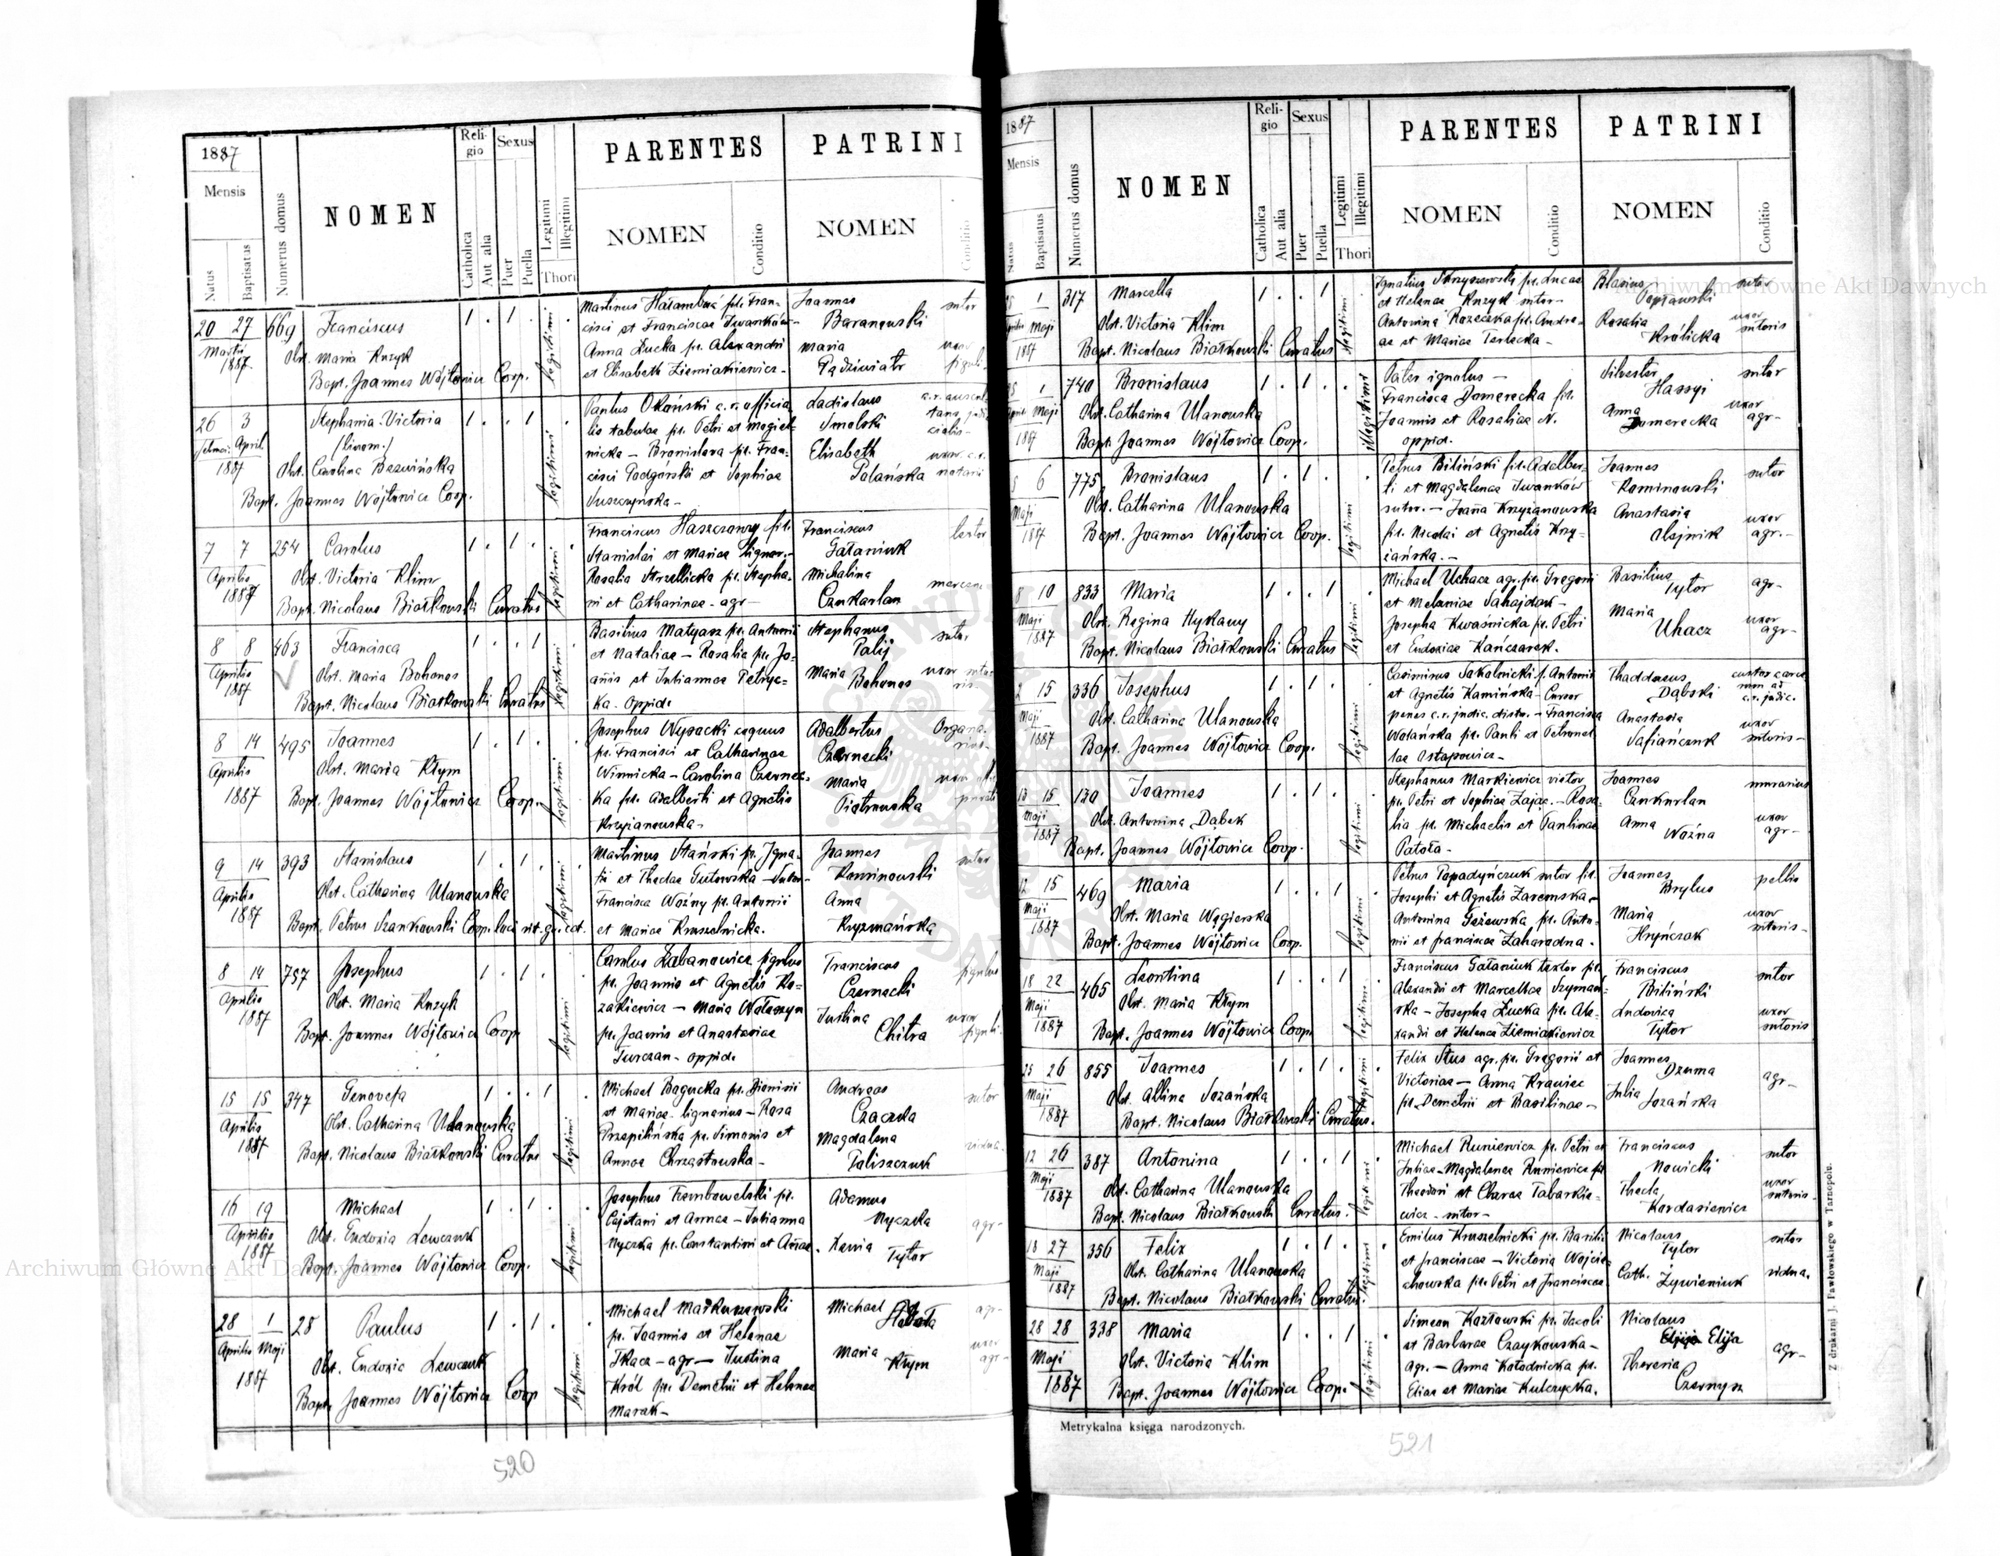 1887
Mensis
Natus
Baptisatus
Numerus domus
NOMEN
Religio
Catholica
Aut alia
Sexus
Puer
Puella
Legitimi
Illegitimi
Thori
PARENTES
NOMEN
Conditio
PATRINI
NOMEN
Conditio
20 27 669 Franciscus 1 . 1 .
Martii
1887
Obst. Maria Kuzyk
Bapt. Joannes Wójtowicz Coop.
legitimi
cisci et Franciscae Iwanków
Anna Łucka fil. Alexandri
et Elisabeth Ziemiakiewicz
Joannes sutor
Baranowski
Maria uxor
26 3 Stephania Victoria 1 . . 1
April
1887
(binom.)
Obst. Carolina
Bapt. Joannes Wójtowicz Coop.
legitimi
Paulus Okoński c.r. officia
lis tabulae fil. Petri et
nicka – Bronislava fil. Fran
cisci Podgórski et Sophiae
Tuszczyńska
Ladislaus
Smolski
Elisabeth
Polańska notarii
7 7 254 Carolus 1 . 1 .
Aprilis
1887
Obst. Victoria Klim
Bapt. Nicolaus Białkowski Curatus
legitimi
Franciscus Haszczowy fil.
Stanislai et Mariae lignar.
Rosalia Strzellicka fil. Stepha
ni et Catharinae – agr
Franciscus textor
Gałaniuk
Michalina
Czukarlan
8 8 463 Francisca 1 . . 1
Aprilis
1887
Obst. Maria Bohonos
Bapt. Nicolaus Białkowski Curatus
legitimi
Basilius Matyasz fil. Antonii
et Nataliae – Rosalia fil. Jo
anis et Julianae Petryc
ka. oppid.
Stephanus sutor
Palij
Maria uxor
Bohonos
8 14 495 Joannes 1 . 1 .
Aprilis
1887
Obst. Maria Kłym
Bapt. Joannes Wójtowicz Coop.
legitimi
Josephus Wysocki coquus
fil. Francisci et Catharinae
Winnicka – Carolina Czernec
ka fil. Adalberti et Agnetis
Krzyżanowska
Adalbertus
Czernecki
Maria
Piotrowska
9 14 393 Stanislaus 1 . 1 .
Aprilis
1887
Obst. Catharina Ulanowska
Bapt. Petrus Szankowski Coop. loci rit. gr. cat.
legitimi
Martinus Stański fil. Igna
tii et Theclae Gutowska – sutor
Francisca Woźny fil. Antonii
et Mariae Kruszelnicka.
Joannes sutor
Kominowski
Anna
Kryzmańska
8 14 757 Josephus 1 . 1 .
Aprilis
1887
Obst. Maria Kuzyk
Bapt. Joannes Wójtowicz Coop
legitimi
Carolus Łabanowicz figulus
fil. Joannis et Agnetis Ko
zakiewicz – Maria Wołoszyn
fil. Joannis et Anastasiae
Turczan – oppid.
Franciscus figulus
Czernecki
Justina uxor
Chitra
15 15 347 Genovefa 1 . . 1
Aprilis
1887
Obst. Catharina Ulanowska
Bapt. Nicolaus Białkowski Curatus
legitimi
Michael Bagucka fil. Dionisii
et Mariae lignarius – Rosa
Przepilińska fil. Simonis et
Annae Chrząstowska
Andreas sutor
Czaczda
Magdalena vidua
Paliszczuk
16 19 Michael 1 . 1 .
Aprilis
1887
Obst. Eudoxia Lewczuk
Bapt. Joannes Wójtowicz Coop.
legitimi
Josephus Trembowelski fil.
Cajetani et Annae – Julianna
Nyczka fil. Constantini et Annae.
Adamus
Nyczka agr
Xenia
Tytor
28 1 28 Paulus 1 . 1 .
Aprilis Maji
1887
Obst. Eudoxia Lewczuk
Bapt. Joannes Wójtowicz Coop
legitimi
Michael Markuszewski
fil. Joannis et Helenae
Tkacz – agr – Justina
Król fil. Demetrii et Helenae
Marak
Michael agr
Maria uxor
Kłym agr
520
1887
Mensis
Natus
Baptisatus
Numerus domus
NOMEN
Religio
Catholica
Aut alia
Sexus
Puer
Puella
Legitimi
Illegitimi
Thori
PARENTES
NOMEN
Conditio
PATRINI
NOMEN
Conditio
1 317 Marcella 1 . . 1
Maji
1887
Obst. Victoria Klim
Bapt. Nicolaus Białkowski Curatus
legitimi
Ignatius Skryszowski fil. Lucae
et Helenae Kuzyk sutor
Antonina Kozeczka fil. Andre
ae et Mariae Terlecka
Blasius sutor
Popławski
Rosalia uxor
Królicka sutoris
1 740 Bronislaus 1 . 1 .
Maji
1887
Obst. Catharina Ulanowska
Bapt. Joannes Wójtowicz Coop.
illegitimi
Pater ignotus –
Francisca Domerecka fil.
Joannis et Rosaliae N.
oppid.
Silvester sutor
Hassyi
Anna uxor
Domerecka agr
6 775 Bronislaus 1 . 1 .
Maji
1887
Obst. Catharina Ulanowska
Bapt. Joannes Wójtowicz Coop.
legitimi
Petrus Biliński fil. Adalber
ti et Magdalenae Iwanków
sutor. – Joana Krzyżanowska
fil. Nicolai et Agnetis Krzy
żańska.
Joannes sutor
Kominowski
Anastasia uxor
Olejnik agr.
8 10 833 Maria 1 . . 1
Maji
1887
Obst. Regina Hykawy
Bapt. Nicolaus Białkowski Curatus
legitimi
Michael Uhacz agr. fil. Gregorii
et Melaniae Sahajdak
Josepha Kwaśnicka fil. Petri
et Eudoxiae Kańczarek.
Basilius agr
Tytor
Maria uxor
Uhacz agr
15 336 Josephus 1 . 1 .
Maji
1887
Obst. Catharina Ulanowska
Bapt. Joannes Wójtowicz Coop.
legitimi
Casimirus Sokolnicki f. Antonii
et Agnetis Kamińska – Cursor
penes c.r. judic. distr. – Francisca
Wolańska fil. Pauli et Petronel
lae Ostapowicz
Thaddaeus custos carce
Dąbski rum ad
c.r. judic.
Anastasia uxor
Safiańczuk sutoris
13 15 130 Joannes 1 . 1 .
Maji
1887
Obst. Antonina Dąbek
Bapt. Joannes Wójtowicz Coop.
legitimi
Stephanus Markiewicz vietor
fil. Petri et Sophiae Zając. – Rosa
lia fil. Michaelis et Paulinae
Patoła
Joannes murarius
Czukurlan
Anna uxor
Woźna agr
12 15 469 Maria 1 . . 1
Maji
1887
Obst. Maria Węgierska
Bapt. Joannes Wójtowicz Coop.
legitimi
Petrus Popadyńczuk sutor fil.
Josephi et Agnetis Zaremska
Antonina Geżewska fil. Anto
nii et Franciscae Zaharodna.
Joannes pellio
Brylus
Maria uxor
Hryńczak sutoris
18 22 465 Leontina 1 . . 1
Maji
1887
Obst. Maria Kłym
Bapt. Joannes Wójtowicz Coop.
legitimi
Franciscus Gałaniuk textor fil.
Alexandri et Marcellae Szyman
ska – Josepha Łucka fil. Ale
xandri et Helenae Ziemiakiewicz
Franciscus sutor
Biliński
Ludovica uxor
Tytor sutoris
25 26 855 Joannes 1 . 1 .
Maji
1887
Obst. Allina Sozańska
Bapt. Nicolaus Białkowski Curatus.
legitimi
Felix Stus agr. fil. Gregorii et
Victoriae – Anna Krawiec
fil. Demetrii et Basilinae
Joannes
Dzuma agr
Julia
Sozańska
12 26 387 Antonina 1 . . 1
Maji
1887
Obst. Catharina Ulanowska
Bapt. Nicolaus Białkowski Curatus.
legitimi
Michael Runiewicz fil. Petri et
Juliae – Magdalena Runiewicz fil.
Theodori et Clarae Tabarkie
wicz – sutor
Franciscus sutor
Nowicki
Thecla uxor
Kordasiewicz sutoris
18 27 356 Felix 1 . 1 .
Maji
1887
Obst. Catharina Ulanowska
Bapt. Nicolaus Białkowski Curatus.
legitimi
Emilius Kruszelnicki fil. Basilii
et Franciscae – Victoria Wojcie
chowska fil. Petri et Franciscae
Nicolaus sutor
Tytor
Cath. vidua.
Żywieniuk
28 28 338 Maria 1 . . 1
Maji
1887
Obst. Victoria Klim
Bapt. Joannes Wójtowicz Coop.
legitimi
Simeon Kozłowski fil. Jacobi
et Barbarae Czaykowska
agr. – Anna Kołodnicka fil.
Eliae et Mariae Kulczycka.
Nicolaus
Elija
Theresia agr
Czernysz
Metrykalna księga narodzonych.
521
Z drukarni J. Pawłowskiego w Tarnopolu.
Archiwum Główne Akt Dawnych
Archiwum Główne Akt Dawnych